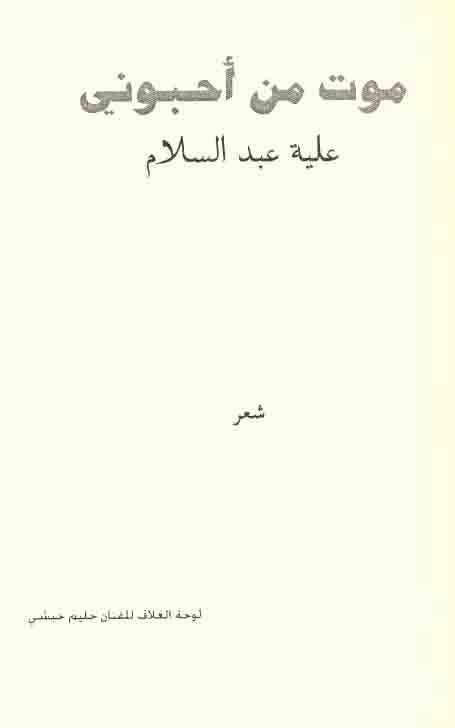 موت من أحبوني
علية عبد السلام
شعر
لوحة الغلاف للفنان حليم حبشي